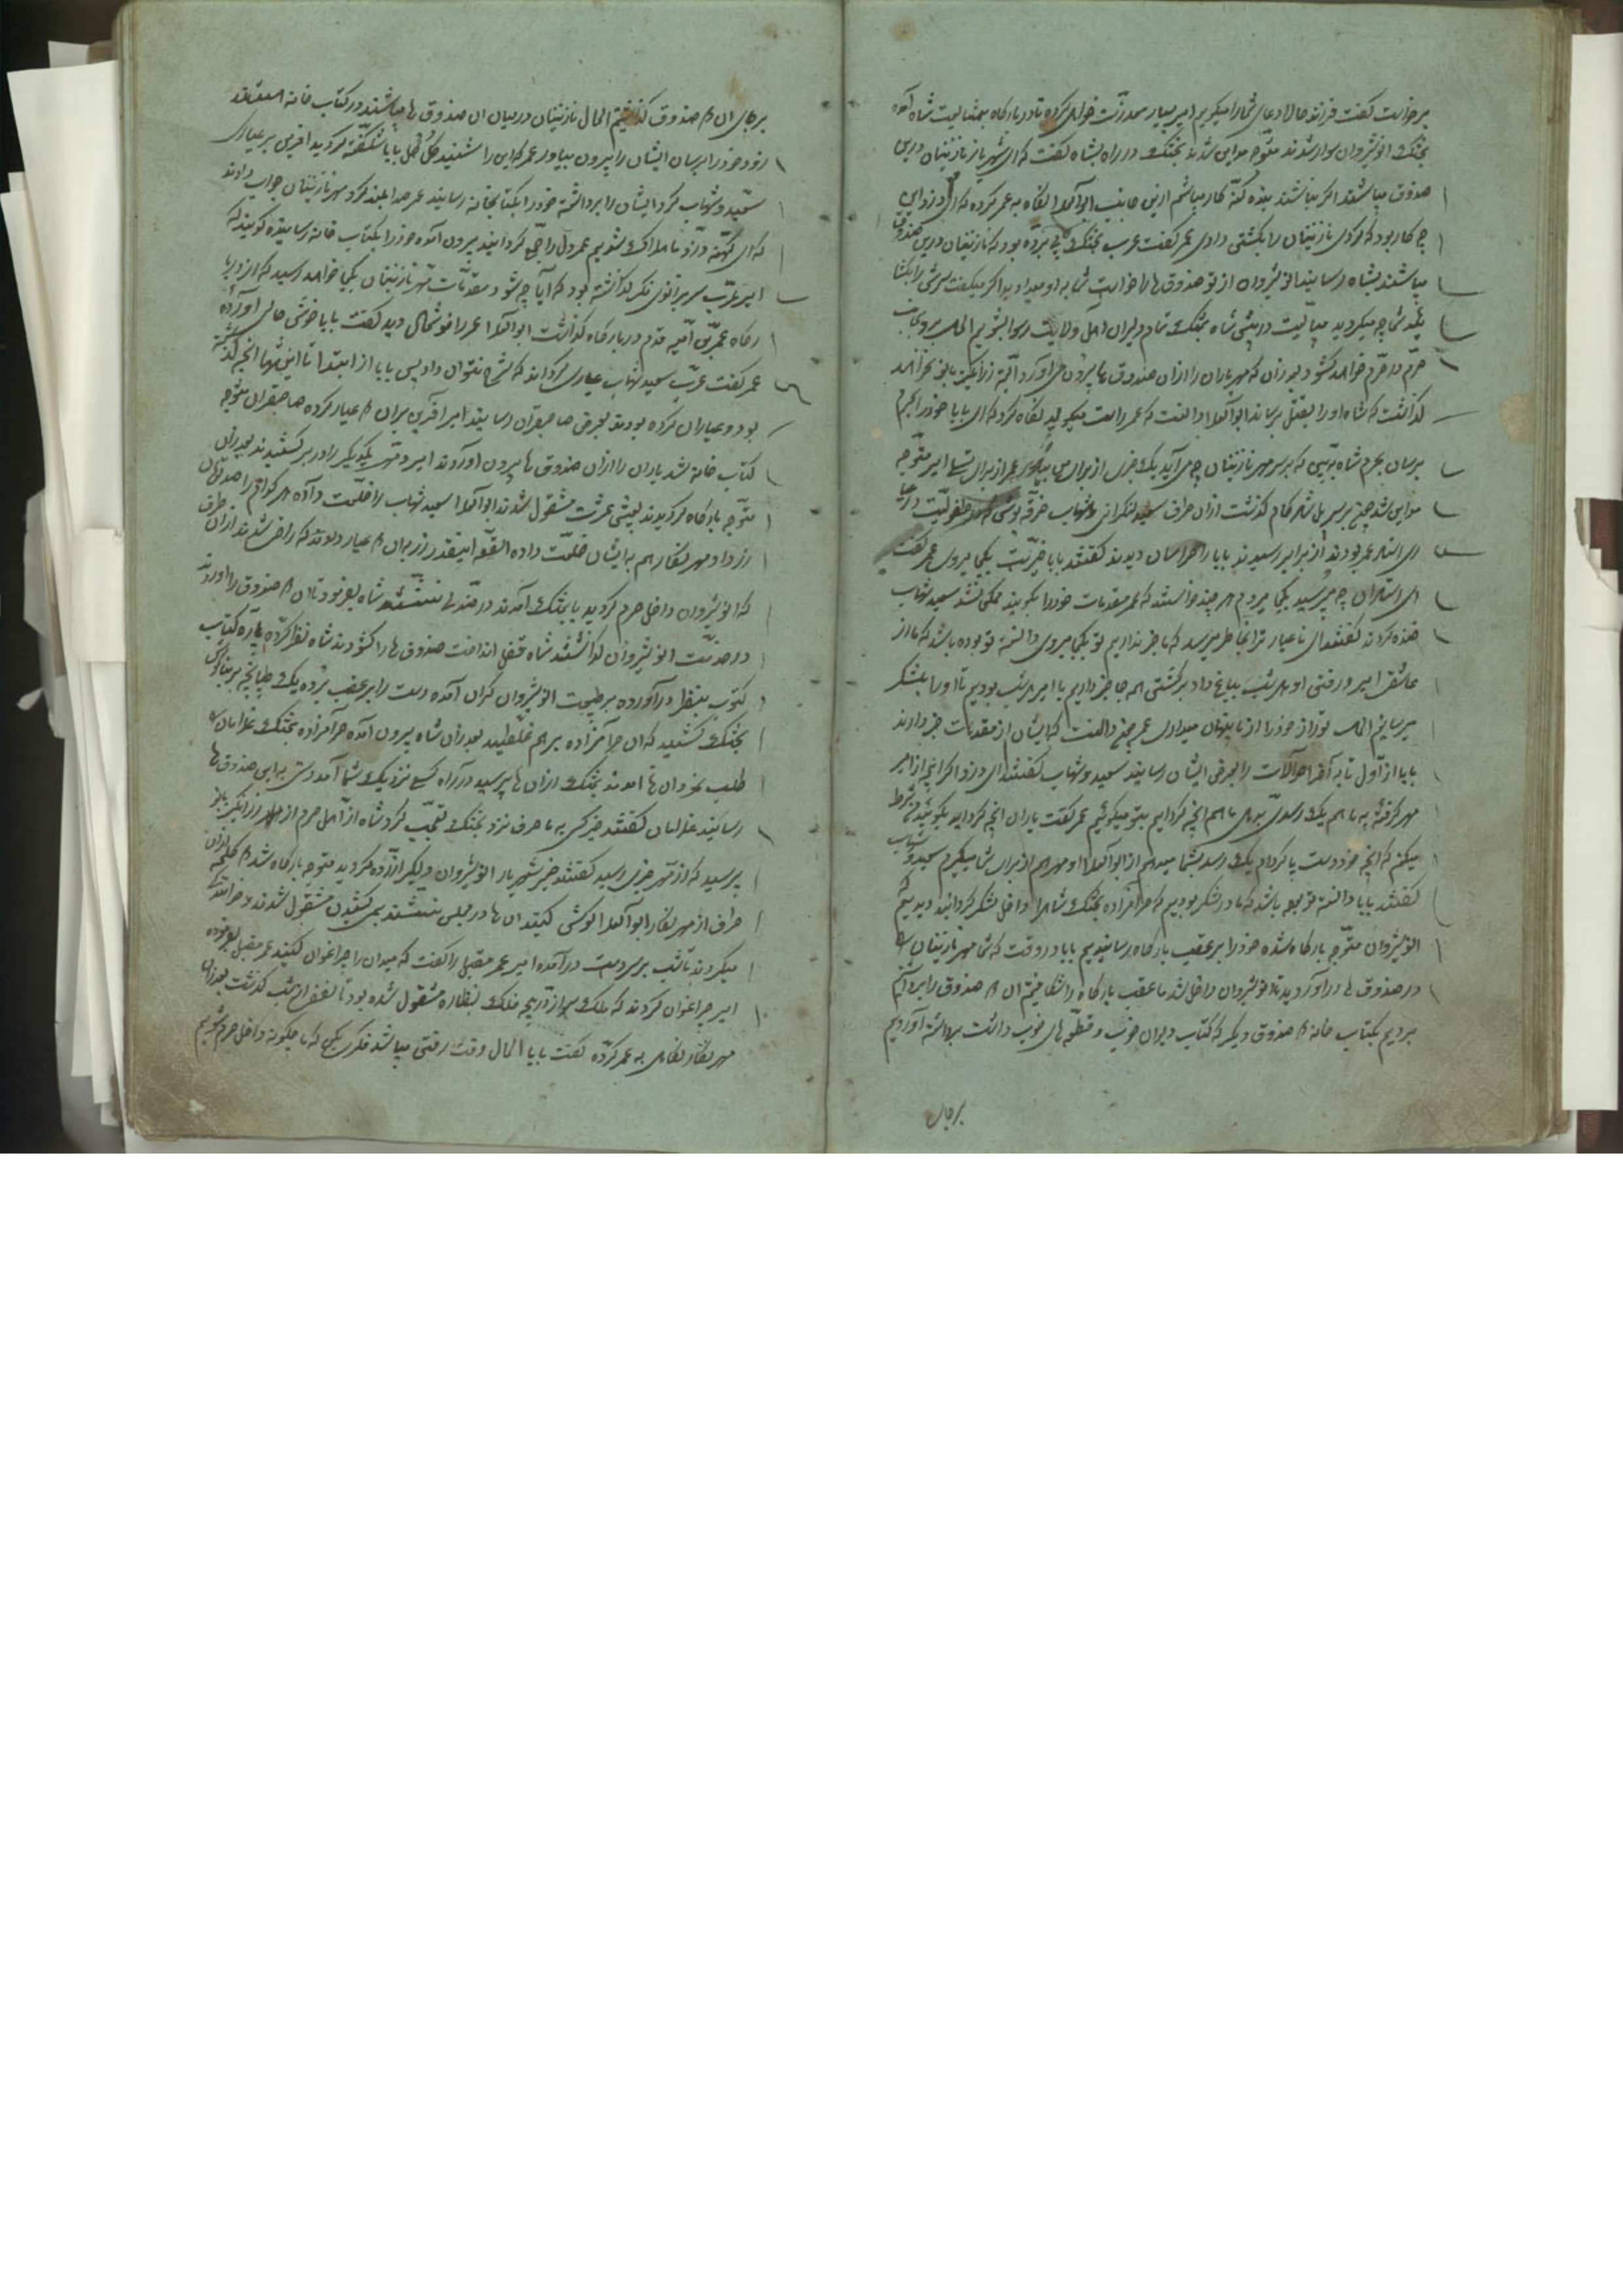 برخواست گفت فرزند حالا دعای شمارا میگیریم امیر بسیار معذرت خواهی کرده تا در بارگاه شاه آمده
بختک انوشیروان سوار شدند متوجه مداین شدند بختک در راه بشاه گفت که ای شهریار نازنینان درین
صندوق میباشند اگر نباشند بنده گنه کار میباشم ازین جانب ابوالعلا نگاه به عمر کرده که ای دزد این
چه کار بود که کردی نازنینان را بکشتن دادی عمر گفت عرب بختک پی برده بود که نازنینان درین صندوق
میباشند بشاه رسانید انوشیروان از تو صندوق ها را خواست شما به او میدادید اگر میگفت سرش را بگشا
شما چه میکردید در پیش شاه بختک تمام دلیران اهل ولایت رسوا میشدیم
حرم در حرم خواهد گشود بعد از آن که مهر یاران را ازان صندوق ها بیرون می آورد البته زرانگیز بانو نخواهد
گذاشت که شاه او را بقتل برساند ابوالعلا دانست که عمر راست میگوید نگاه کرد که ای بابا خود را بحرم
برسان بحرم شاه ببین که بر سر مهر نازنینان چه می آید یک خبر از برای من بیاور عمر از برای امیر متوجه
مداین شد چون بر سر پل شاد کام گذشت ازان طرف سعید لنگرانی و شهاب خرقه پوش که در طفولیت
استاد عمر بودند از برابر رسیدند بابا را هراسان دیدند گفتند بابا خیریت بکجا میروی عمر گفت
ای استادان چه میپرسید بکجا میروم هر چند خواستند که عمر مقدمات خود را بگویند ممکن نشد سعید شهاب
خنده کردند گفتند ای نا عیار ترا بخاطر میرسد که ما خبر نداریم تو بکجا میروی دانسته تو بوده باشد که ما از
عاشقی امیر و رفتن او هر شب بباغ داد برگشتن همه جا خبر داریم با امیر هر شب بودیم تا او را بلشکر
میرسانیم الحال تو راز خود را از ما پنهان میداری عمر چون دانست که ایشان از مقدمات خبر دارند
بابا از اول تا به آخر احوالات را بعرض ایشان رسانید سعید و شهاب گفتند ای دزد اگر آنچه از امیر
مهر گرفته به ما هم یک رسدی بدهی ما هم آنچه کرده ایم بتو میگوئیم عمر گفت یاران آنچه کرده اید بگوئید شرط
میکنم که آنچه خود دست پا کرده ام یک رسد بشما میدهم از ابوالعلا و مهر هم از برای شما میگیرم سعید و شهاب
گفتند بابا دانسته تو بوده باشد که ما در لشکر بودیم که حرامزاده بختک شاه را داخل لشکر گردانید دیدیم که
انوشیروان متوجه بارگاه شده خود را بر عقب بارگاه رسانیدیم بابا در وقت که شما مهر نازنینان را
در صندوق ها در آوردید تا انوشیروان داخل شد ما عقب بارگاه را شکافتیم آن صندوق را برداشتیم
بردیم بکتاب خانه صندوق دیگر که کتاب دیوان خوب و قطعه های خوب داشت برداشته آوردیم
برجای
برجای آن صندوق گذاشتیم الحال نازنینان در میان آن صندوق ها میباشند در کتاب خانه
زود خود را برسان ایشان را بیرون بیاور عمر که این را شنید گل گل بابا شگفته گردید آفرین بر عیاری
سعید و شهاب کرد ایشان را برداشته خود را بکتابخانه رسانید عمر صدا بلند کرد مهر نازنینان جواب دادند
که ای کهنه دزد ما هلاک شدیم عمر دل را جمع گردانید بیرون آمده خود را بکتاب خانه رسانیده گویند که
امیر عرب سر بزانوی فکر گذاشته بود که آیا چه شود مقدمات مهر نازنینان بکجا خواهد رسید که از در
بارگاه عمر بن امیه قدم در بارگاه گذاشت ابوالعلا عمر را خوشحال دید گفت بابا خوش حالی آورده
عمر گفت عرب سعید شهاب عیاری کرده اند که شرح نتوان داد پس بابا از ابتدا تا انتها آنچه گذشته
بود و عیاران کرده بودند بعرض صاحبقران رسانید امیر آفرین بران عیار کرده صاحبقران متوجه
کتاب خانه شد یاران را ازان صندوق ها بیرون آوردند امیر و مهر یکدیگر را در بر کشیدند بعد ازان
متوجه بارگاه گردیدند بعیش عشرت مشغول شدند ابوالعلا سعید شهاب را خلعت داده هر کدام را صد تومان
زر داد مهر نگار هم به ایشان خلعت داده القصه اینقدر زر بران عیار دادند که راضی شدند ازان طرف
که انوشیروان داخل حرم گردید با بختک آمدند در صندلی نشستند شاه بفرمود تا آن صندوق را آوردند
در خدمت انوشیروان گذاشتند شاه قفل انداخت صندوق ها را گشودند شاه نظر کرده پاره کتاب
کتوب بنظر در آورده بر طبیعت انوشیروان گران آمده دست را بر عقب برده یک طپانچه بر بناگوش
بختک کشید که آن حرامزاده برهم غلطید بعد ازان شاه بیرون آمده حرامزاده بختک غلامان را
طلب نمود آن ها آمدند بختک ازان ها پرسید در راه کسی نزدیک شما آمد دستی به این صندوق ها
رسانید غلامان گفتند خیر کسی به ما حرف نزد بختک تعجب کرد شاه از اهل حرم از زرانگیز بانو
پرسید که از مهر خبری رسید گفتند خیر شهریار انوشیروان دلگیر آزرده گردید متوجه بارگاه شد
طرف از مهر نگار ابوالعلا در مجلس نشستند بمی کشیدن مشغول شدند
میکردند تا شب بر سر دست در آمده امیر عمر مقبل را گفت که میدان را چراغان کنید عمر مقبل بفرموده
امیر چراغان کردند که ملک از دریچه فلک بنظاره مشغول شده بود تا نصف از شب گذشت بعد ازان
مهر نگار نگاهی به عمر کرده گفت بابا الحال وقت رفتن میباشد فکری بکن که ما چگونه داخل حرم شویم